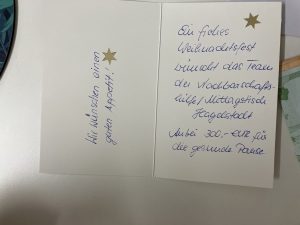 Wir wünschen einen
guten Appetit!
Ein frohes
Weihnachtsfest
wünscht das Team
der Nachbarschafts-
hilfe/Mittagstisch
Hagelstadt
Anbei 300,- EUR für
die gesunde Pause